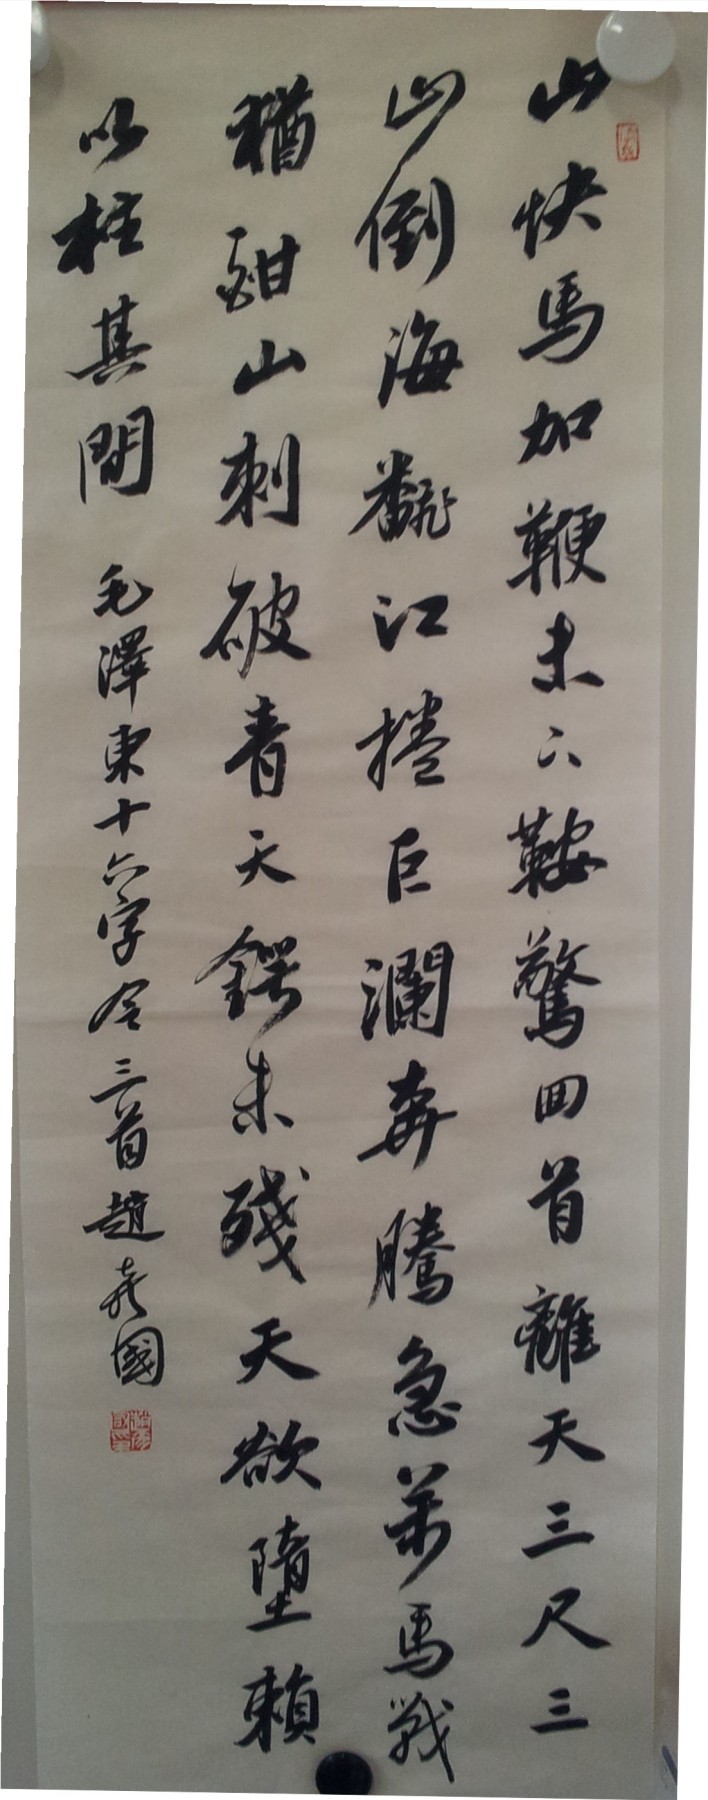 山快馬加鞭未下鞍驚回首離天三尺三
山倒海飜江捲巨瀾奔騰急萬馬戰
猶酣山刺破青天鍔未殘天欲墮賴
以柱其間 毛澤東十六字令三首趙

國